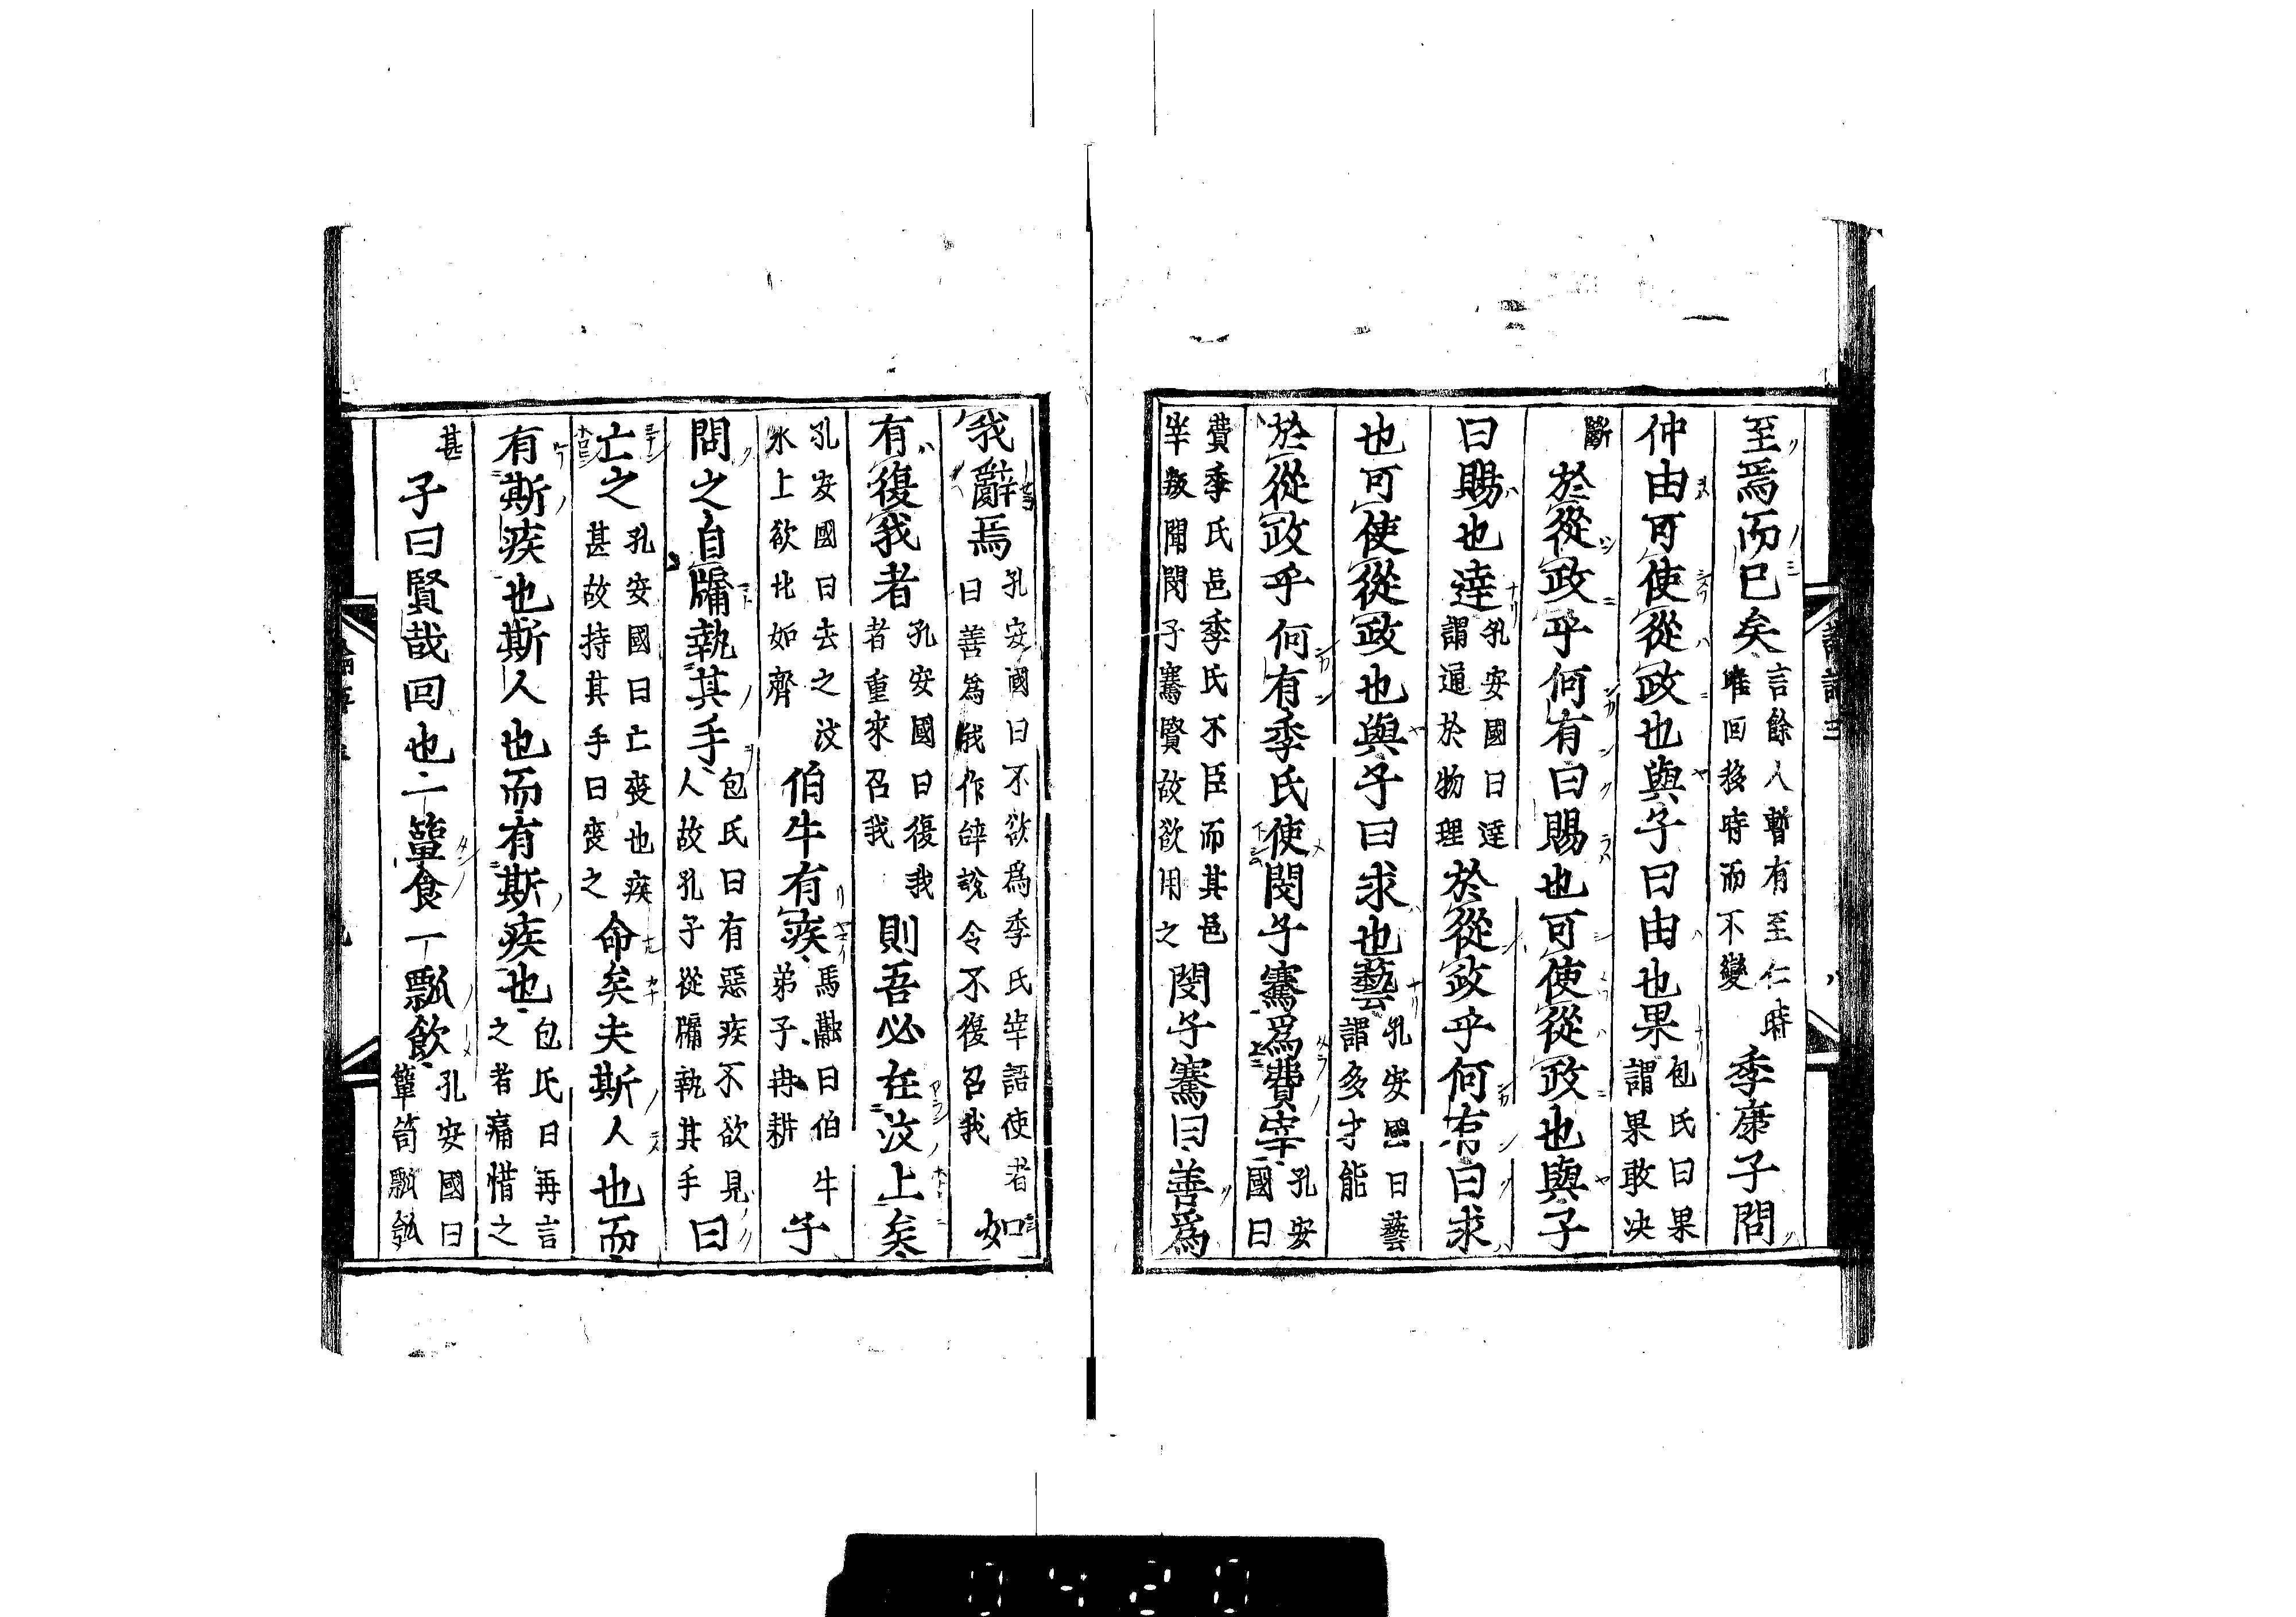 至焉而已矣言餘人暫有至仁時唯回移時而不變季康子問
仲由可使從政也與子曰由也果包氏曰果謂果敢决
斷於從政乎何有曰賜也可使從政也與子
曰賜也達孔安國曰達謂通於物理於從政乎何有曰求
也可使從政也與子曰求也藝孔安國曰藝謂多才能
於從政乎何有季氏使閔子騫爲費宰孔安國曰
費季氏邑季氏不臣而其邑宰叛聞閔子騫賢故欲用之閔子騫曰善爲
我辭焉孔安國曰不欲爲季氏宰語使者曰善爲我作辝說令不復召我如
有復我者孔安國曰復我者重來召我則吾必在汶上矣
孔安國曰去之汶水上欲北如齊伯牛有疾馬融曰伯牛弟子冉耕子
問之自牖執其手包氏曰有惡疾不欲見人故孔子從牖執其手曰
亡之孔安國曰亡喪也疾甚故持其手曰喪之命矣夫斯人也而
有斯疾也斯人也而有斯疾也包氏曰再言之者痛惜之
甚子曰賢哉回也一簞食一瓢飲孔安國曰簞笥瓢瓠
0420